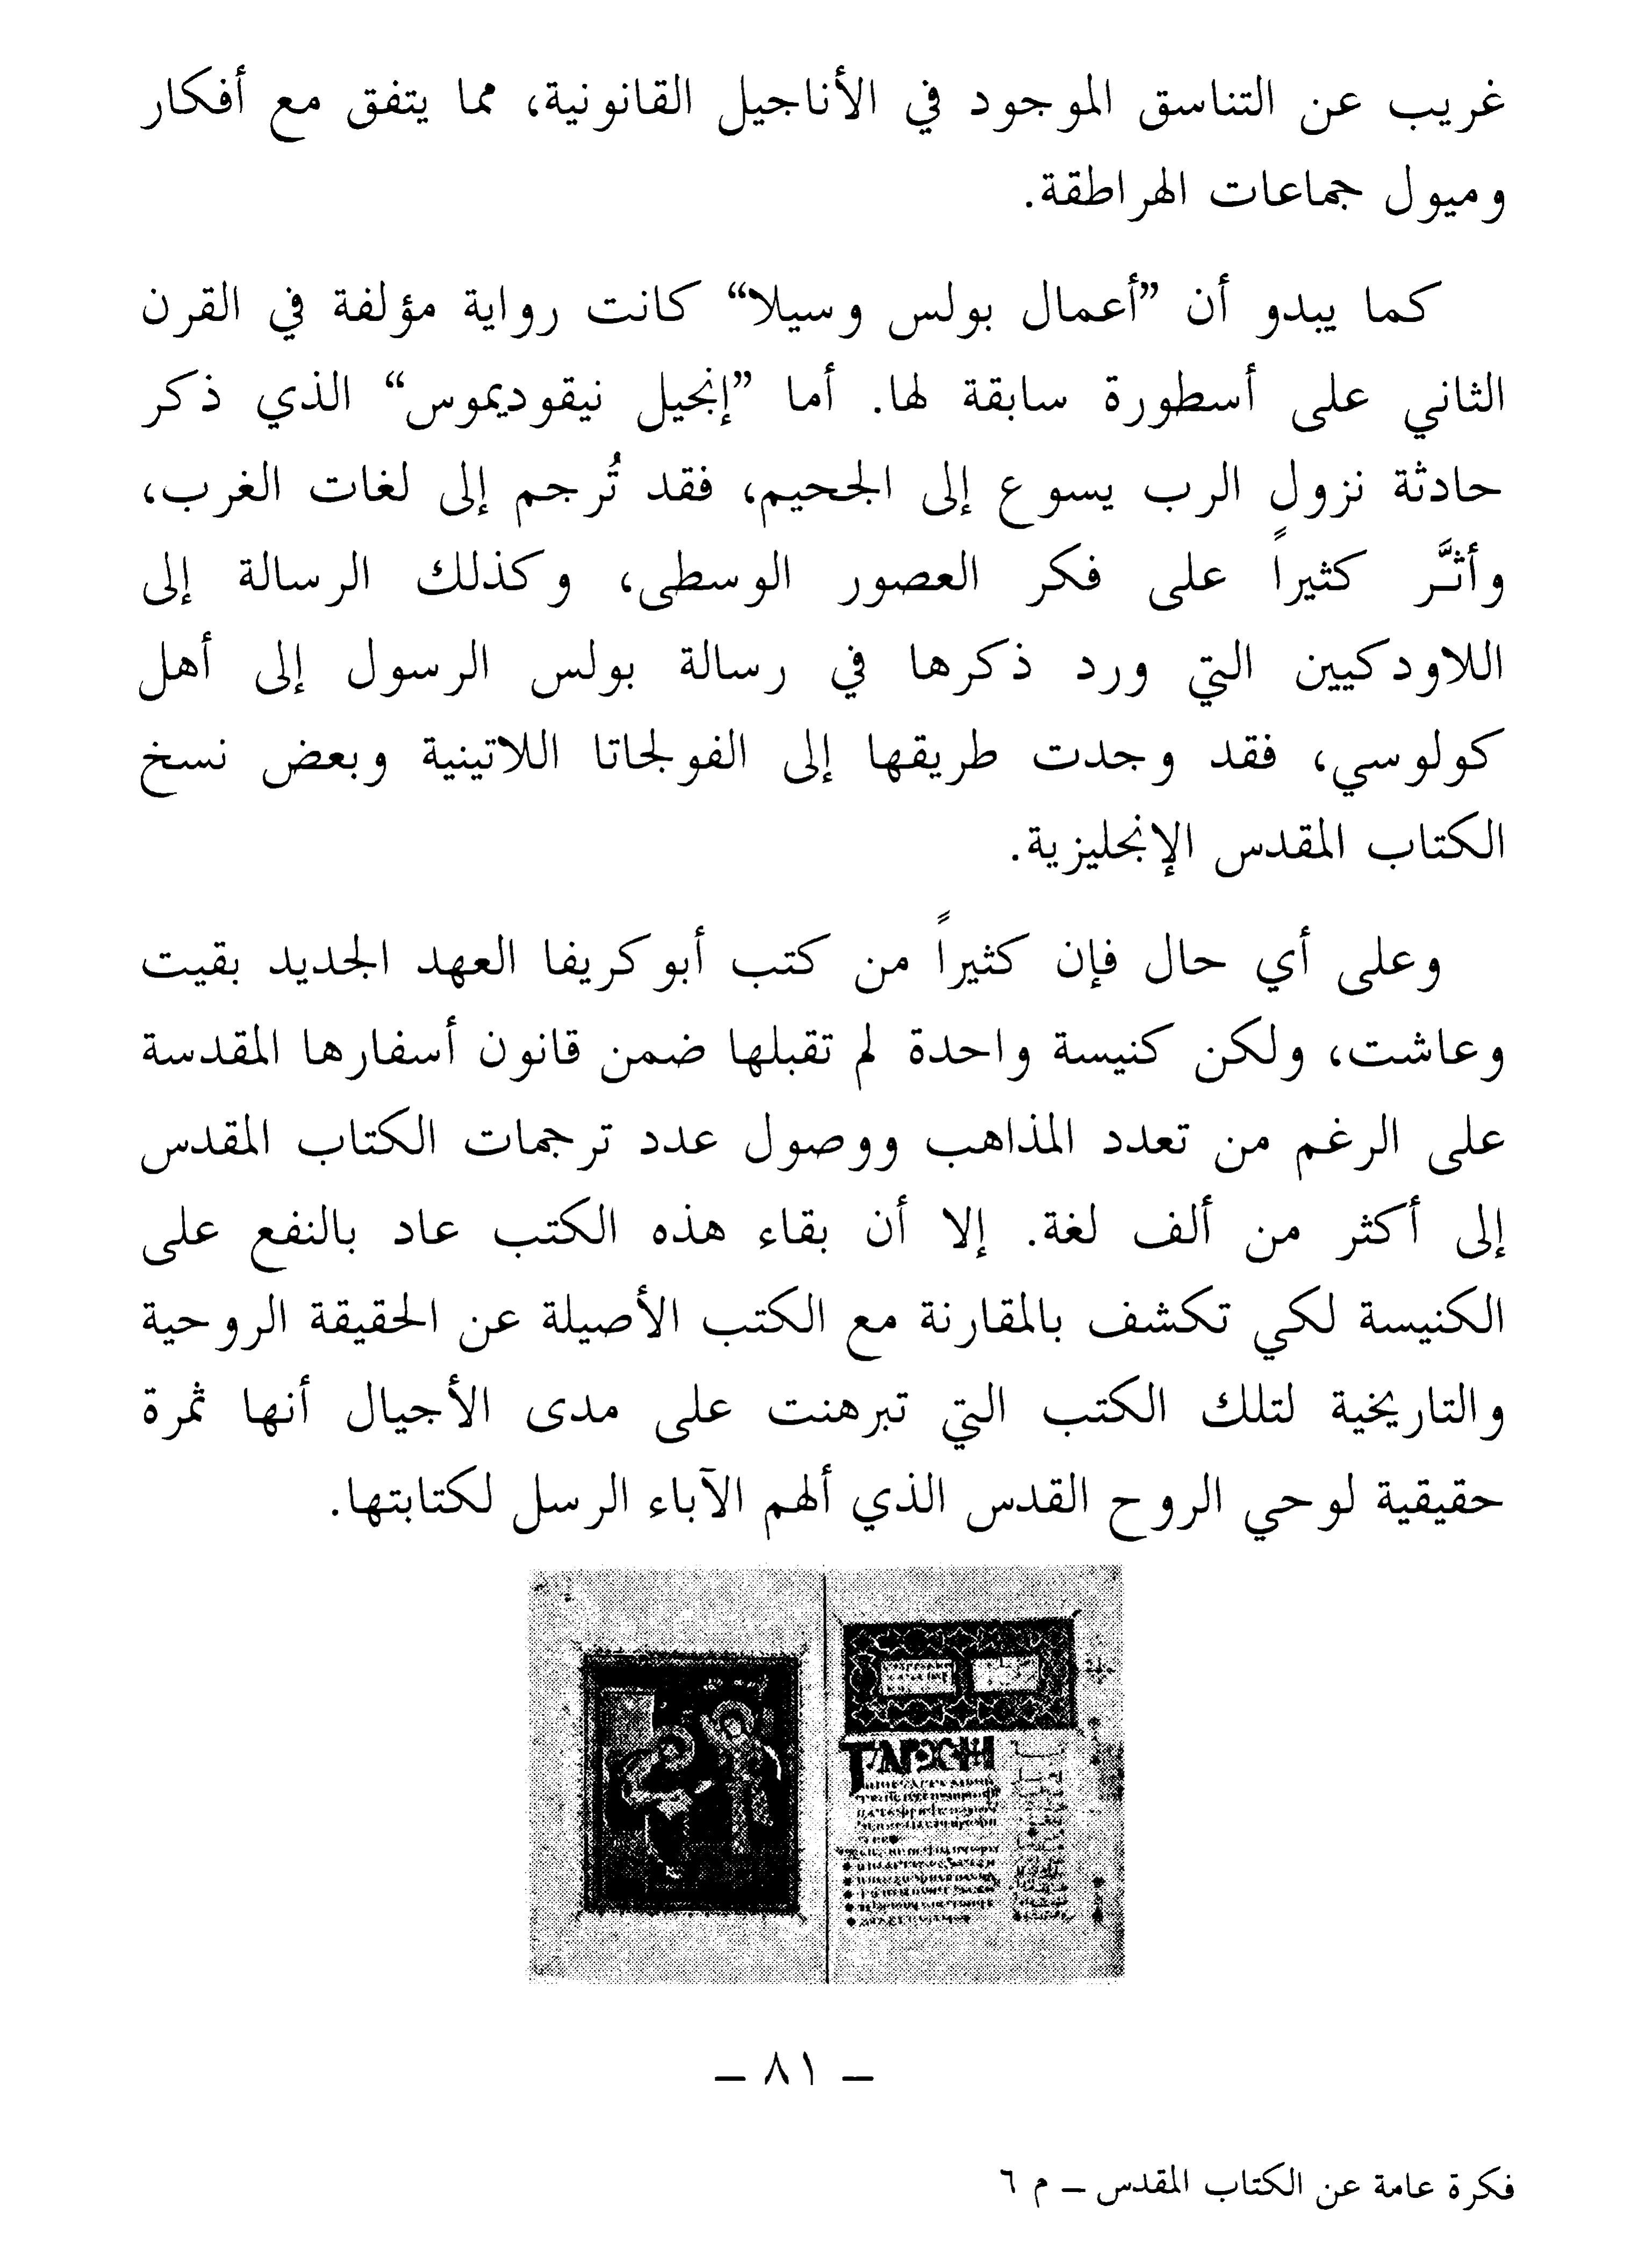 غريب عن التناسق الموجود في الأناجيل القانونية، مما يتفق مع أفكار
وميول جماعات الهراطقة.
كما يبدو أن ”أعمال بولس وسيلا“ كانت رواية مؤلفة في القرن
الثاني على أسطورة سابقة لها. أما ”إنجيل نيقوديموس“ الذي ذكر
حادثة نزول الرب يسوع إلى الجحيم، فقد تُرجم إلى لغات الغرب،
وأثـَّر كثيراً على فكر العصور الوسطى، وكذلك الرسالة إلى
اللاودكيين التي ورد ذكرها في رسالة بولس الرسول إلى أهل
كولوسي، فقد وجدت طريقها إلى الفولجاتا اللاتينية وبعض نسخ
الكتاب المقدس الإنجليزية.
وعلى أي حال فإن كثيراً من كتب أبوكريفا العهد الجديد بقيت
وعاشت، ولكن كنيسة واحدة لم تقبلها ضمن قانون أسفارها المقدسة
على الرغم من تعدد المذاهب ووصول عدد ترجمات الكتاب المقدس
إلى أكثر من ألف لغة. إلا أن بقاء هذه الكتب عاد بالنفع على
الكنيسة لكي تكشف بالمقارنة مع الكتب الأصيلة عن الحقيقة الروحية
والتاريخية لتلك الكتب التي تبرهنت على مدى الأجيال أنها ثمرة
حقيقية لوحي الروح القدس الذي ألهم الآباء الرسل لكتابتها.
– ٨١ –
فكرة عامة عن الكتاب المقدس – م ٦